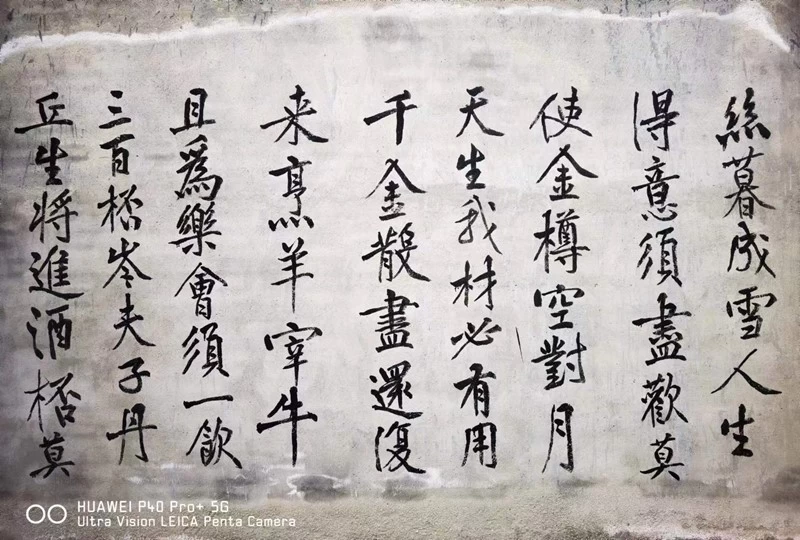 絲暮成雪人生
得意須盡歡莫
使金樽空對月
天生我材必有用
千金散盡還復
来烹羊宰牛
且爲樂會須一飲
三百桮岑夫子丹
丘生将進酒桮莫
HUAWEI P40 Pro+ 5G
Ultra Vision LEICA Penta Camera